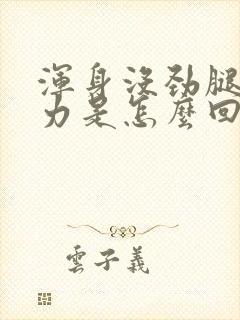 渾身沒勁腿
力是怎麼回
雲子義